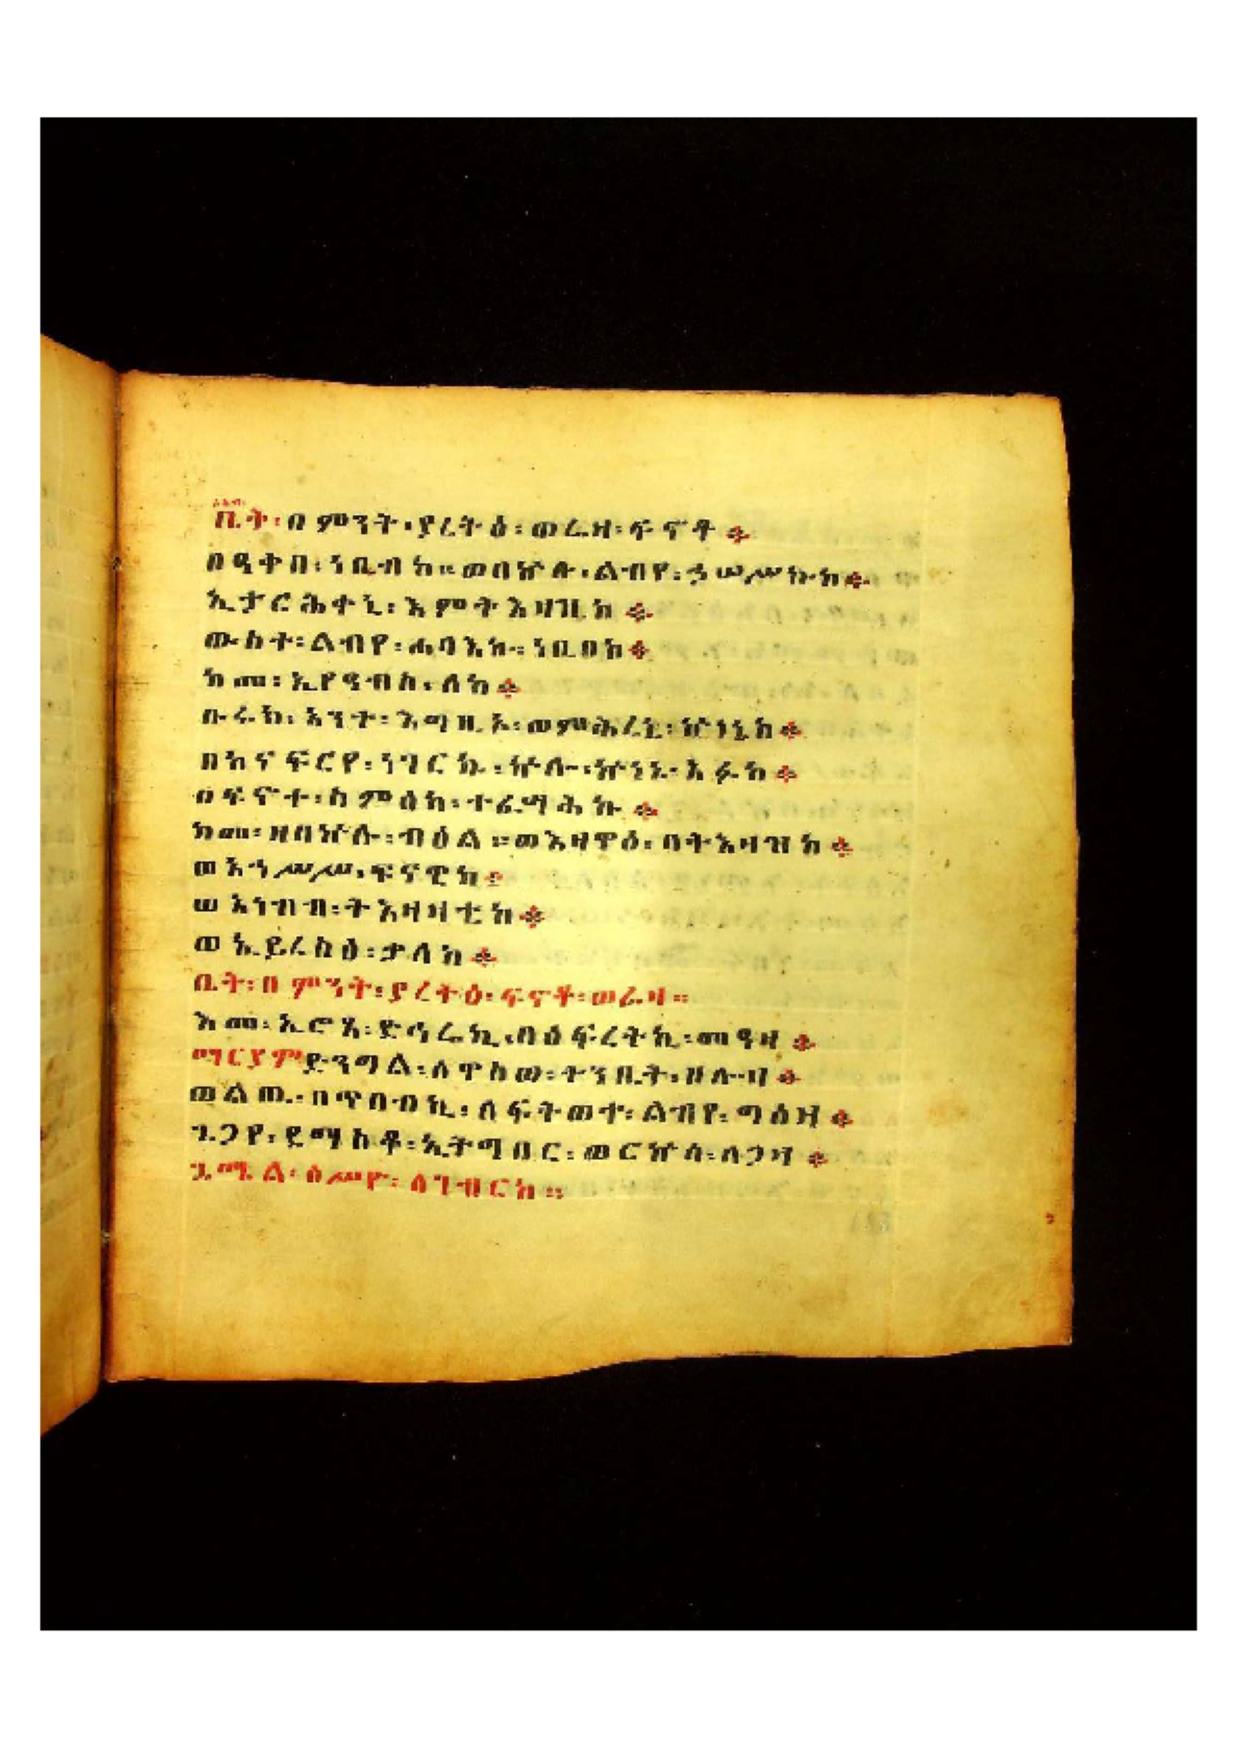 ቤት፡በምንት፡ያረትዕ፡ወሬዛ፡ፍኖቶ፨
በዒቀበ፡ነቢብከ።ወበኵሉ፡ልብየ፡ኃሠሥኩከ፨
ኢታርሕቀኒ፡እምትእዛዚከ፨
ውስተ፡ልብየ፡ሐባእኩ።ነቢበከ፨
ከመ፡ኢየዓብስ፡ለከ፨
ቡሩክ፡አንተ፡እግዚኦ፡ወምሕረኒ፡ኵነኔከ፨
በከናፍርየ፡ነገርኩ፡ኵሎ፡ኵነኔ፡አፉከ፨
በፍኖተ፡ስምዕከ፡ተፈሣሕኩ፨
ከመ፡ዘበኵሉ፡ብዕል።ወእዛዋዕ፡በትእዛዝከ፨
ወአኀሥሥ፡ፍናዊከ፨
ወአነብብ፡ትእዛዛቲከ፨
ወኢይረስዕ፡ቃለከ፨
ቤት፡በምንት፡ያረትዕ፡ፍኖቶ፡ወሬዛ።
እመ፡ኢሮጸ፡ድኅሬኪ፡በዕፍረትኪ፡መዓዛ፨
ማርያምድንግል፡ለጥበው፡ተንቢት፡ዘሎዛ፨
ወልጡ፡በጥበብኪ፡ለፍትወተ፡ልብየ፡ግዕዛ፨
ጌጋየ፡ደማስቆ፡ኢትግበር፡ወርኵሰ፡ለጋዛ፨
ጌሜል፡ዕሥየ፡ለገብርከ።